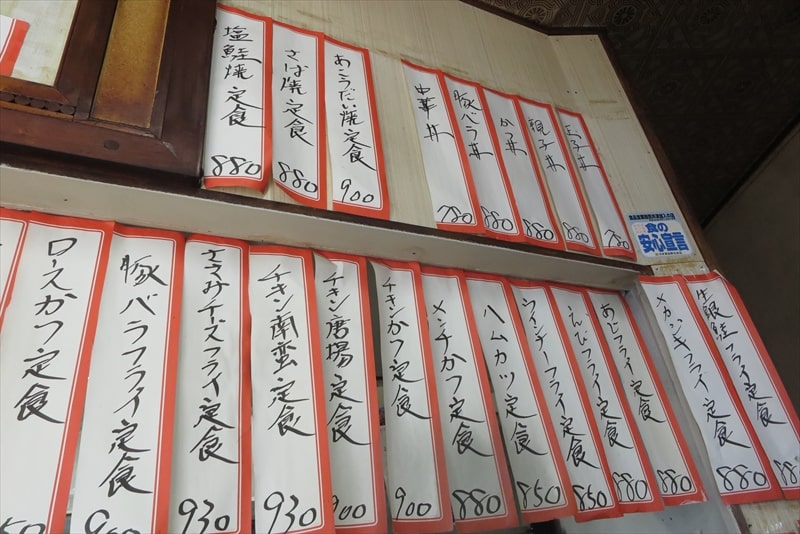 塩鮭焼定食 880
さば焼定食 880
あこうだい焼定食 900
中華丼 780
豚バラ丼 880
かつ丼 880
親子丼 880
玉子丼 780
食の
安心宣言
ロースかつ定食
豚バラフライ定食 900
ささみチーズフライ定食 930
チキン南蛮定食 930
チキン唐揚定食 900
チキンかつ定食 900
メンチかつ定食 880
ハムカツ定食 850
ウインナーフライ定食 850
えびフライ定食 880
あじフライ定食 880
メカジキフライ定食 880
生銀鮭フライ定食 88